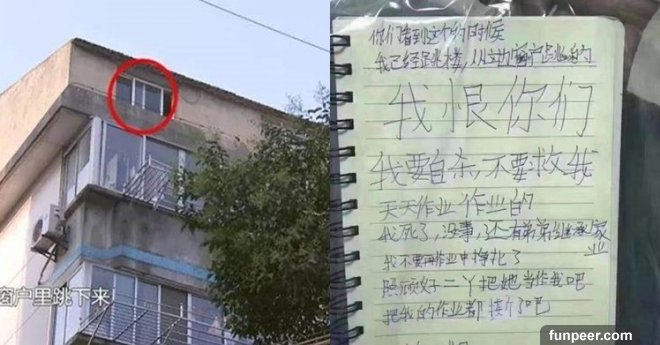 窗户里跳下来
你们看到这个的时候
我已经跳楼,从这边窗户跳的
我恨你们
我要自杀,不要救我
天天作业作业的
我死了,没事,还有弟弟继承家业
我不要再作业中挣扎了
照顾好二丫把她当作我吧
把我的作业都撕了吧
funpeer.com